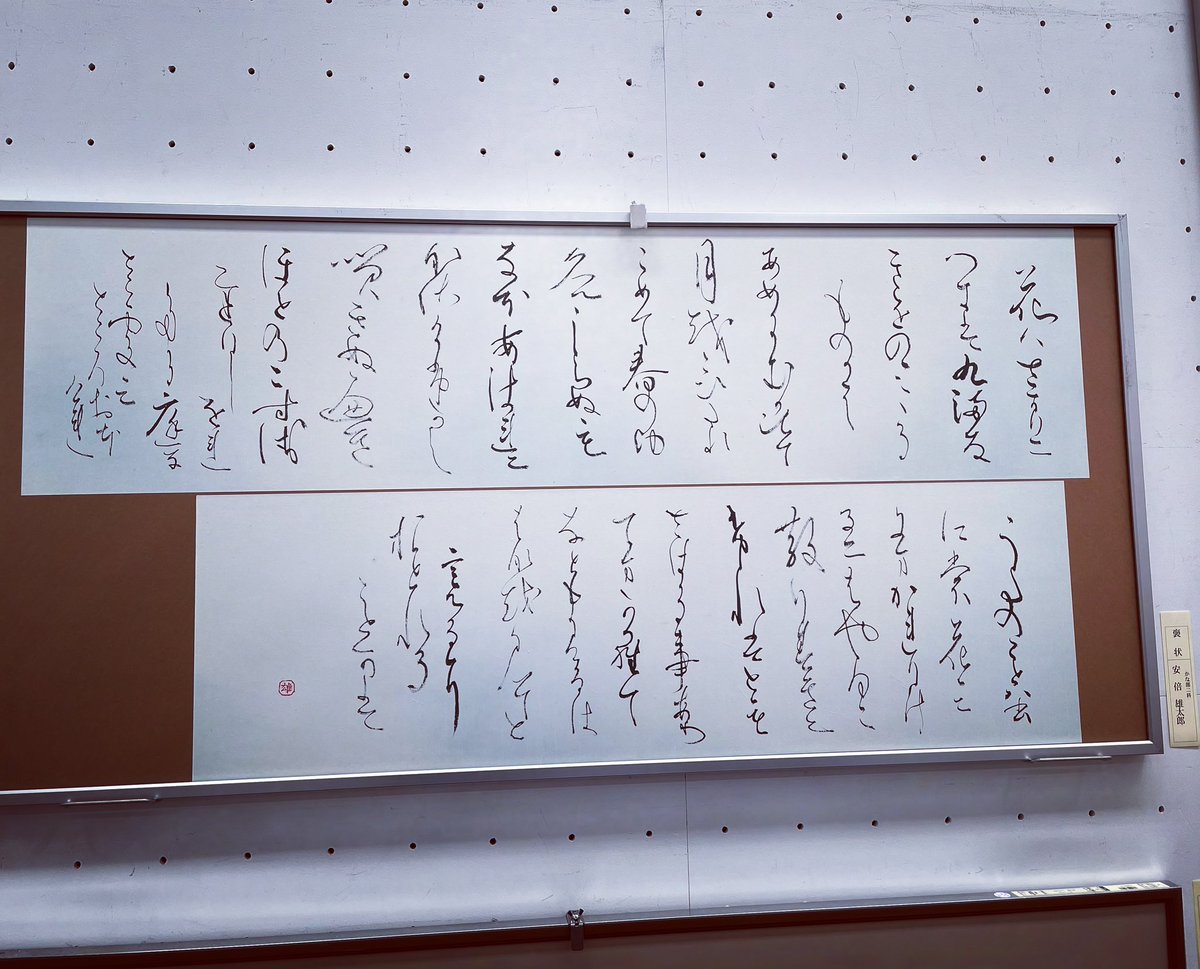 花はさかりに
つきはくまな
きをのみみる
ものかは
あめにむかひて
月をこひたれ
こめて春のゆ
くへしらぬも
なほあはれに
なさけふかし
咲きぬへき
ほとのこすゑ
をれ
庭な
とこそみ
ところおほ
けれ
うたのことは
に裳花見に
まかれりけ
るにはやく
散りすきに
けれはとも
さはる事あり
てまからて
なともかけるは
はなを見てと
言へる
おとれる
ことかは
雄
褒状 かな部二科 安倍 雄太郎